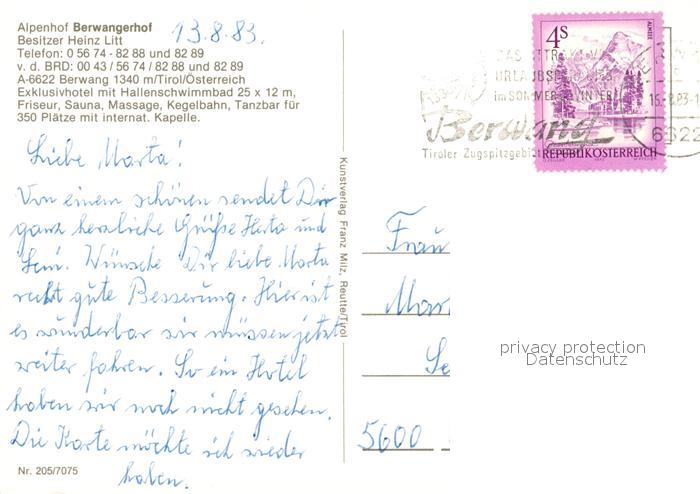 Alpenhof Berwangerhof
Besitzer Heinz Litt
Telefon: 0 56 74 - 82 88 und 82 89
v. d. BRD: 00 43 / 56 74 / 82 88 und 82 89
A-6622 Berwang 1340 m/Tirol/Österreich
Exklusivhotel mit Hallenschwimmbad 25 x 12 m,
Friseur, Sauna, Massage, Kegelbahn, Tanzbar für
350 Plätze mit internat. Kapelle.
13.8.83.
Liebe Marta!
Von einem schönen sendet Dir
ganz herzliche Grüße Herta und
Wünsche Dir liebe Marta
recht gute Besserung. Hier ist
es wunderbar wir müssen jetzt
weiter fahren. So ein Hotel
haben wir noch nicht gesehen.
Die Karte möchte ich wieder
haben.
Nr. 205/7075
Kunstverlag Franz Milz, Reutte/Tirol
URLAUBS
im SOMMER WINTER
Berwang
Tiroler Zugspitzgebiet
4S
ALMSEE
REPUBLIK ÖSTERREICH
6622
Frau
Mar
Se
5600
privacy protection
Datenschutz